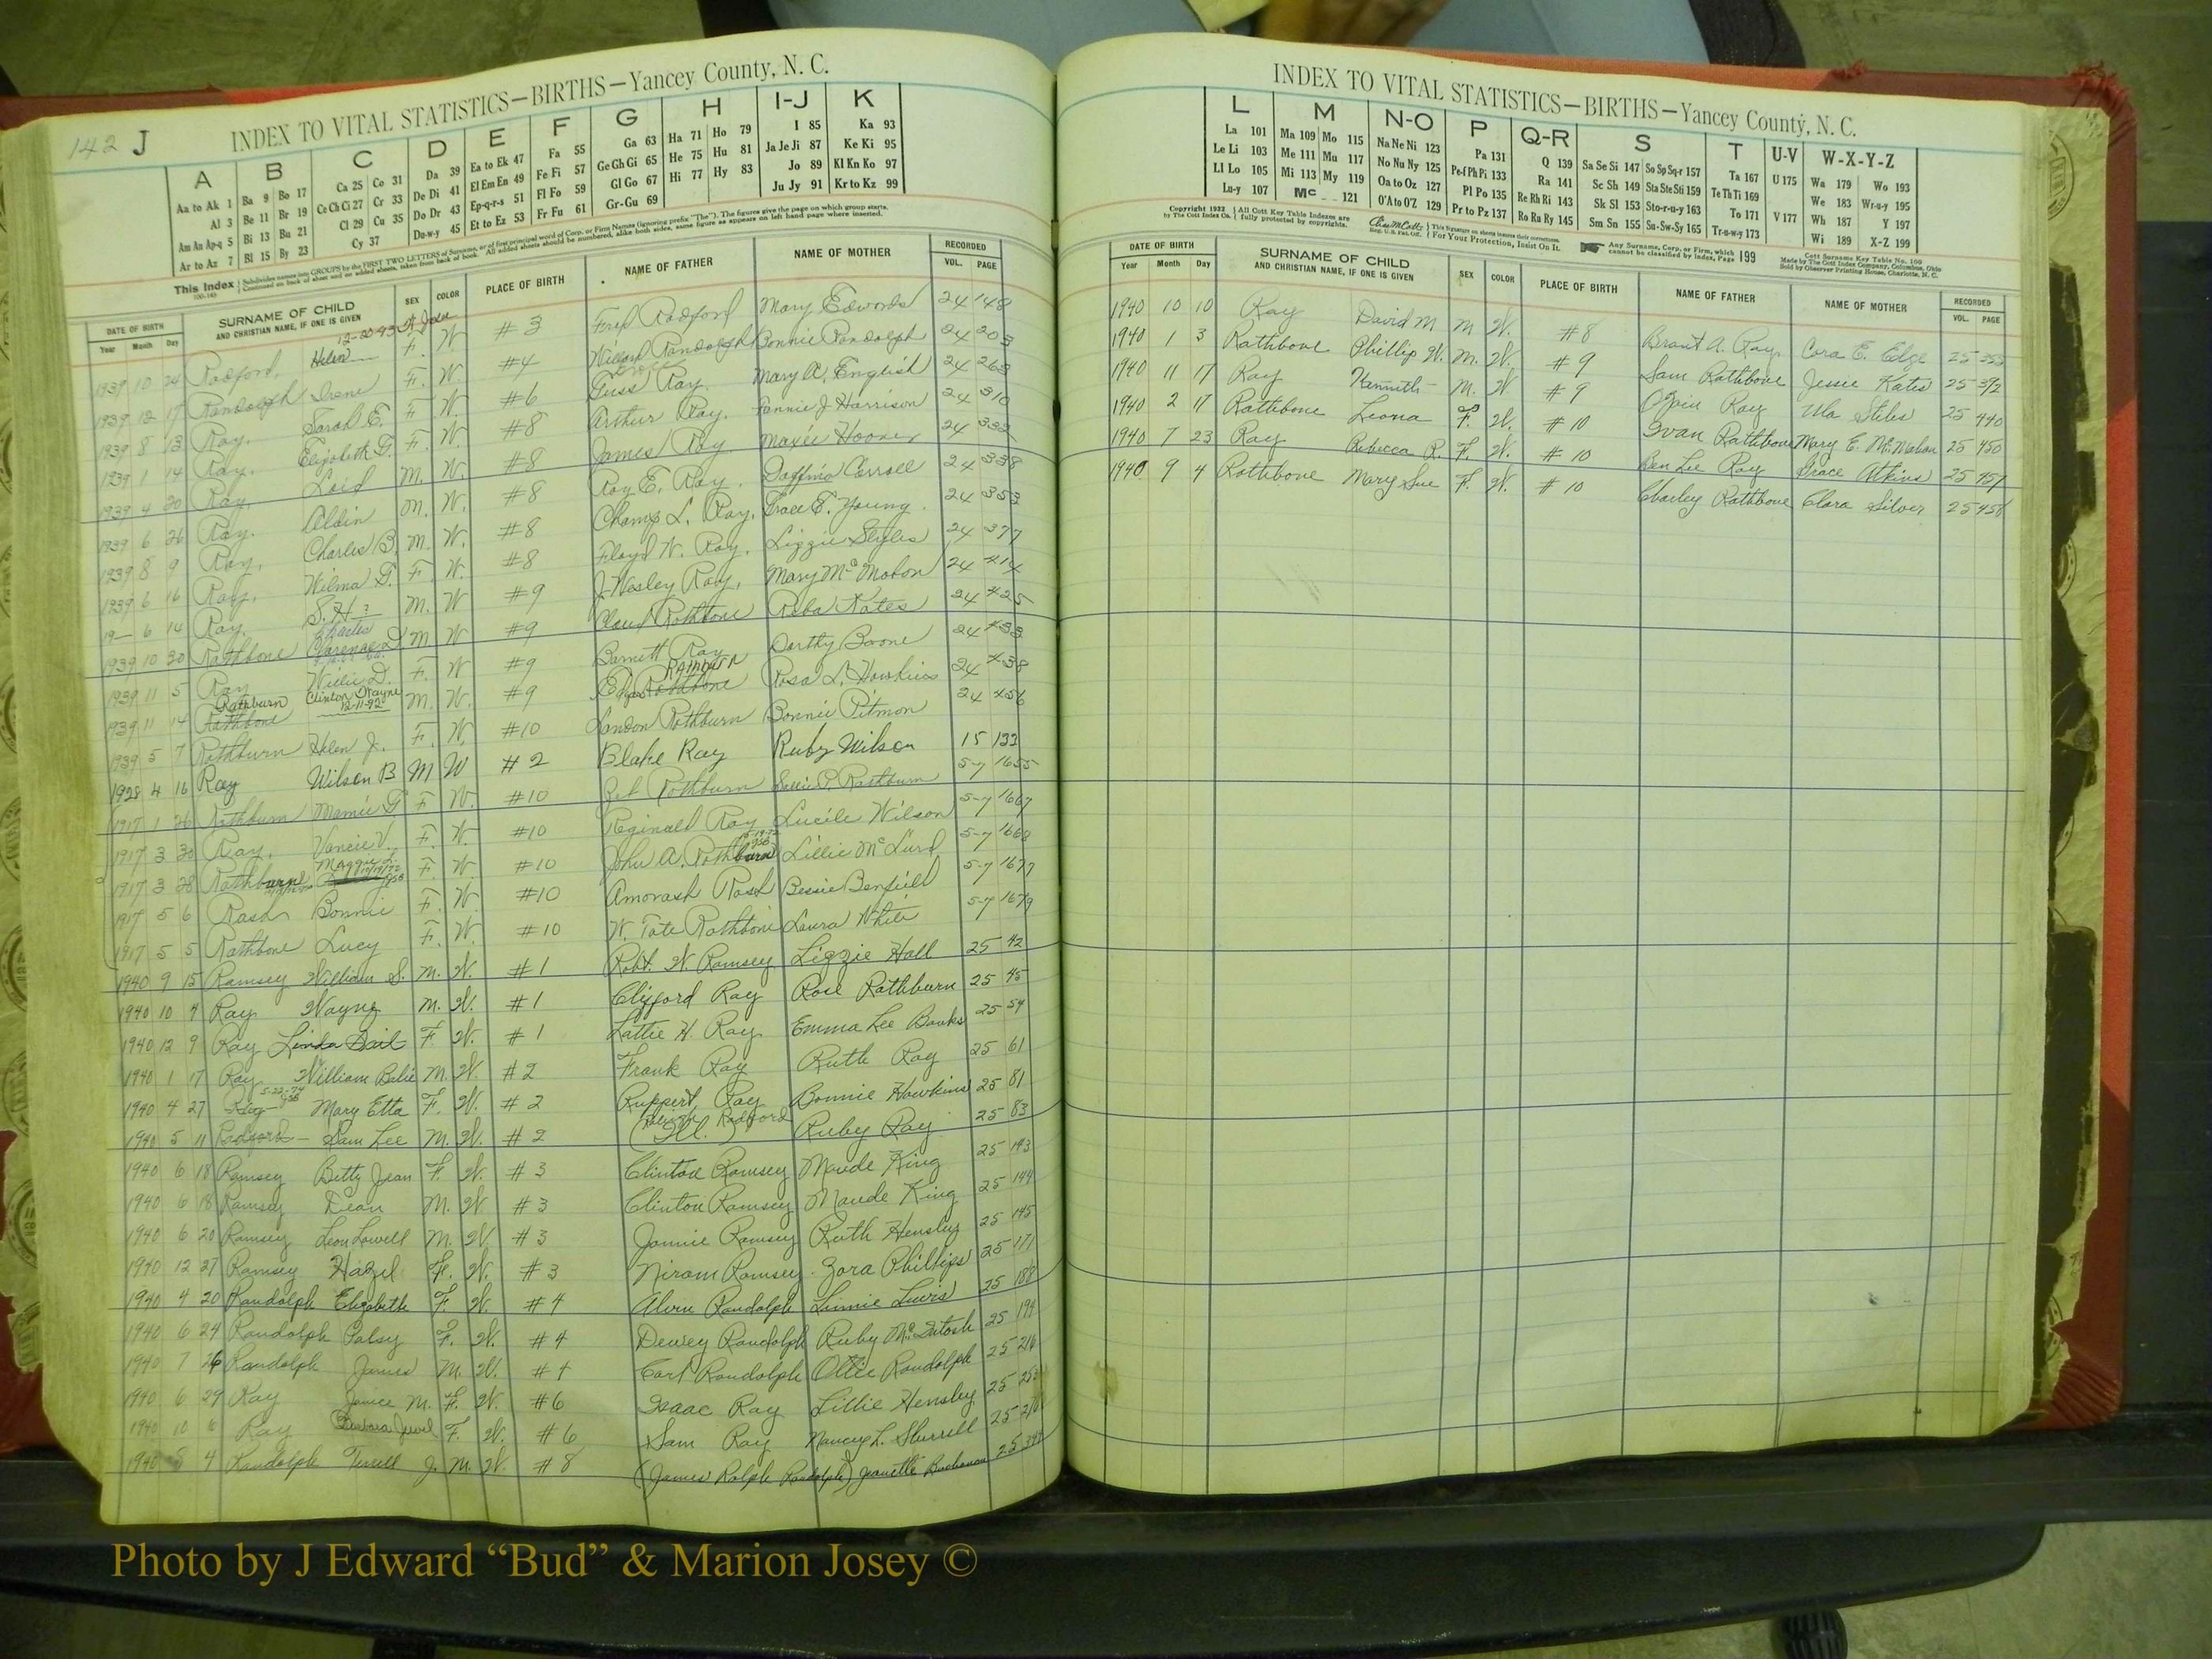 142 J
INDEX TO VITAL STATISTICS—BIRTHS—Yancey County, N. C.
A B C D E F G H I-J K
Aa to Ak 1 Ba 9 Bo 17 Ca 25 Co 31 Da 39 Ea to Ek 47 Fa 55 Ga 63 Ha 71 Ho 79 I 85 Ka 93
Al 3 Be 11 Br 19 Ce Ch Ci 27 Cr 33 De Di 41 El Em En 49 Fe Fi 57 Ge Gh Gi 65 He 75 Hu 81 Ja Je Ji 87 Ke Ki 95
Am An Ap-q 5 Bi 13 Bu 21 Cl 29 Cu 35 Do Dr 43 Ep-q-r-s 51 Fl Fo 59 Gl Go 67 Hi 77 Hy 83 Jo 89 Kl Kn Ko 97
Ar to Az 7 Bl 15 By 23 Cy 37 Du-w-y 45 Et to Ez 53 Fr Fu 61 Gr-Gu 69 Ju Jy 91 Kr to Kz 99
This Index Subdivides names into GROUPS by the FIRST TWO LETTERS of Surname, or of first principal word of Corp. or Firm Names (ignoring prefix "The"). The figures give the page on which group starts.
Continued on back of sheet and on added sheets, taken from back of book. All added sheets should be numbered, alike both sides, same figure as appears on left hand page where inserted.
DATE OF BIRTH SURNAME OF CHILD SEX COLOR PLACE OF BIRTH NAME OF FATHER NAME OF MOTHER RECORDED
Year Month Day AND CHRISTIAN NAME, IF ONE IS GIVEN VOL. PAGE
1939 10 24 Radford, Helen F. W #3 Fred Radford Mary Edwards 24 148
1939 12 17 Randolph Irene F. W. #4 Willard Randolph Bonnie Randolph 24 203
1939 8 13 Ray, Sarah E. F W. #6 Guss Ray Mary A. English 24 263
1939 1 14 Ray, Elizabeth G. F. W. #8 Arthur Ray, Fannie J Harrison 24 310
1939 4 20 Ray, Loid M. W. #8 James Ray Maxie Hoover 24 332
1939 6 26 Ray, Aldin M. W. #8 Roy E. Ray, Carroll 24 338
1939 8 9 Ray, Charles B. M. W. #8 Champ L. Ray, Grace E. Young 24 353
1939 6 16 Ray, Wilma G. F. W. #8 Floyd W. Ray, Lizzie Styles 24 377
19— 6 14 Ray, S. H. ? M. W #9 J. Wesley Ray, Mary McMahon 24 414
1939 10 30 Rathbone Clarence D M W #9 Claud Rathbone Reba Kates 24 425
1939 11 5 Ray Willie D. F. W #9 Barnett Ray Dorthy Boone 24 433
1939 11 14 Rathbone Rathburn Clinton Wayne 12-11-92 M. W. #9 Edgar Rathbone RATHBURN Rosa L. Hawkins 24 438
1939 5 7 Rathburn Helen J. F. W. #10 Landon Rathburn Bonnie Pitman 24 456
1928 4 16 Ray Wilson B M W #2 Blake Ray Ruby Wilson 15 133
1917 1 26 Rathburn Mamie G F W. #10 Rathburn Sallie P. Rathburn 5-7 1655
1917 3 30 Ray, Vancie V. F. W. #10 Reginald Ray Lucile Wilson 5-7 1667
1917 3 28 Rathburn Maggie L. F. W. #10 John A. Rathburn Lillie McCurd 5-7 1668
1917 5 6 Rash Bonnie F. W. #10 Amorash Rash Bessie Benfield 5-7 1677
1917 5 5 Rathbone Lucy F. W. #10 W. Tate Rathbone Laura White 5-7 1679
1940 9 15 Ramsey William S. M. W. #1 Robt. W. Ramsey Lizzie Hall 25 42
1940 10 4 Ray Wayne M. W. #1 Clifford Ray Rose Rathburn 25 45
1940 12 9 Ray Linda Gail F. W. #1 Lattie H. Ray Emma Lee Banks 25 54
1940 1 17 Ray William M. W. #2 Frank Ray Ruth Ray 25 61
1940 4 27 Ray 5-22-74 Mary Etta F. W. #2 Ruppert Ray Bonnie Hawkins 25 81
1940 5 11 Radford Sam Lee M. W. #2 (Ill.) Radford Ruby Ray 25 83
1940 6 18 Ramsey Betty Jean F. W. #3 Clinton Ramsey Maude King 25 143
1940 6 18 Ramsey Dean M. W #3 Clinton Ramsey Maude King 25 144
1940 6 20 Ramsey Leon Lowell M. W. #3 Jammie Ramsey Ruth Hensley 25 145
1940 12 27 Ramsey Hazel F. W. #3 Niram Ramsey Zora Phillips 25 171
1940 4 20 Randolph Elizabeth F. W. #4 Alvin Randolph Linnie Lewis 25 188
1940 6 24 Randolph Patsy F. W. #4 Dewey Randolph Ruby McIntosh 25 194
1940 7 26 Randolph James M. W. #4 Carl Randolph Ottie Randolph 25 216
1940 6 29 Ray Janice M. F. W. #6 Isaac Ray Lillie Hensley 25
1940 10 6 Ray Barbara Jewel F. W. #6 Sam Ray Nancy L. 25
1940 5 4 Randolph Terrell J. M. W. #8 (James Ralph Randolph) Jeanette Buchanan 25
INDEX TO VITAL STATISTICS—BIRTHS—Yancey County, N. C.
L M N-O P Q-R S T U-V W-X-Y-Z
La 101 Ma 109 Mo 115 Na Ne Ni 123 Pa 131 Q 139 Sa Se Si 147 So Sp Sq-r 157 Ta 167 U 175 Wa 179 Wo 193
Le Li 103 Me 111 Mu 117 No Nu Ny 125 Pe-f Ph Pi 133 Ra 141 Sc Sh 149 Sta Ste Sti 159 Te Th Ti 169 We 183 Wr-u-y 195
Ll Lo 105 Mi 113 My 119 Oa to Oz 127 Pl Po 135 Re Rh Ri 143 Sk Sl 153 Sto-r-u-y 163 To 171 V 177 Wh 187 Y 197
Lu-y 107 Mc 121 O'A to O'Z 129 Pr to Pz 137 Ro Ru Ry 145 Sm Sn 155 Su-Sw-Sy 165 Tr-u-w-y 173 Wi 189 X-Z 199
Copyright 1932 by The Cott Index Co. All Cott Key Table Indexes are fully protected by copyrights. Reg. U.S. Pat. Off. For Your Protection, Insist On It. Any Surname, Corp. or Firm, which cannot be classified by Index, Page 199 Cott Surname Key Table No. 100
Made by The Cott Index Company, Columbus, Ohio
Sold by Observer Printing House, Charlotte, N. C.
DATE OF BIRTH SURNAME OF CHILD SEX COLOR PLACE OF BIRTH NAME OF FATHER NAME OF MOTHER RECORDED
Year Month Day AND CHRISTIAN NAME, IF ONE IS GIVEN VOL. PAGE
1940 10 10 Ray David M M W. #8 Brant A. Ray Cora E. Edge 25 353
1940 1 3 Rathbone Phillip W. M. W. #9 Sam Rathbone Jessie Kates 25 392
1940 11 17 Ray Kenneth M. W #9 Ray Ula Stiles 25 440
1940 2 17 Rathbone Leona F. W. #10 Ivan Rathbone Mary E. McMahan 25 450
1940 7 23 Ray Rebecca R. F. W. #10 Ben Lee Ray Grace Atkins 25 457
1940 9 4 Rathbone Mary Sue F. W. #10 Charley Rathbone Clara Silver 25 458
Photo by J Edward “Bud” & Marion Josey ©